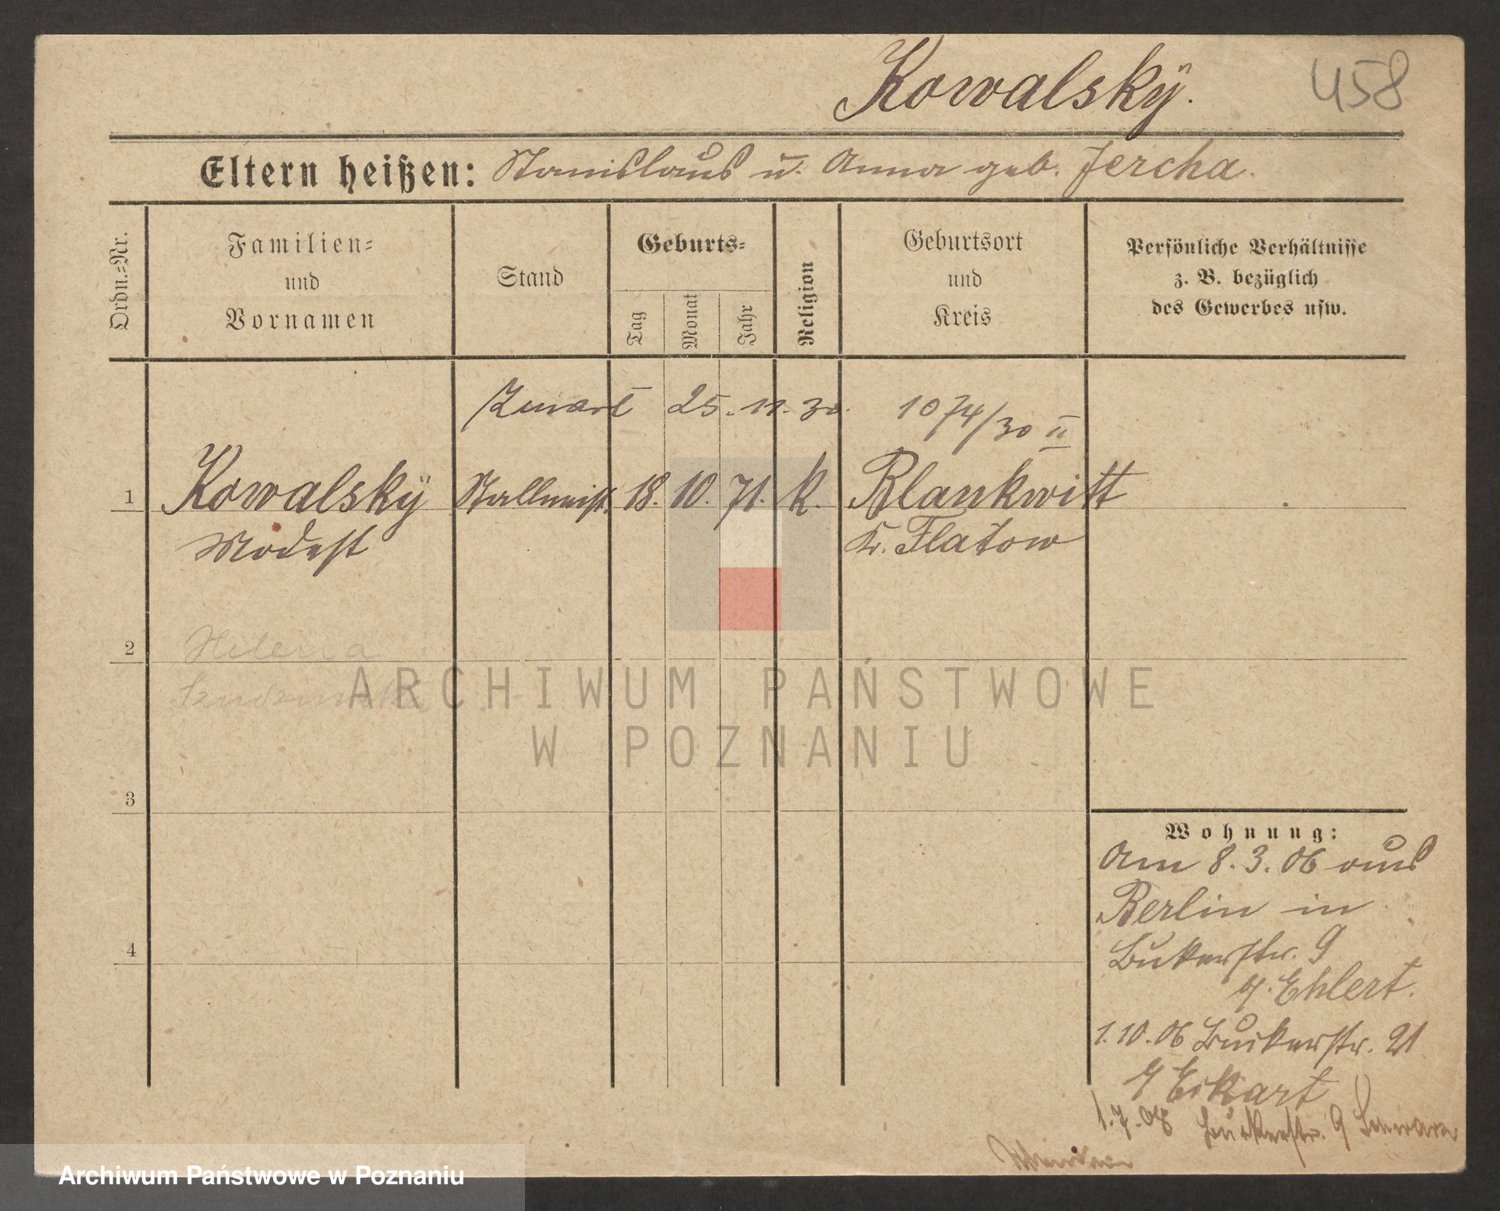 Kowalskÿ.
458
Eltern heißen: Stanislaus u. Anna geb. Jercha.
Ordn.=Nr.
Familien=
und
Vornamen
Stand
Geburts=
Tag
Monat
Jahr
Religion
Geburtsort
und
Kreis
Persönliche Verhältnisse
z. B. bezüglich
des Gewerbes usw.
25. 11. 30. 1074/30 II
1 Kowalskÿ Stallmist. 18. 10. 71. k. Blankwitt
Modest Kr. Flatow
2 Helena
3
4
ARCHIWUM PAŃSTWOWE
W POZNANIU
Wohnung:
Am 8. 3. 06 aus
Berlin in
Bukerstr. 9
Ehlert.
1. 10. 06 Bukerstr. 21
Eckart
1. 7. 08 Bukerstr. 9
Archiwum Państwowe w Poznaniu